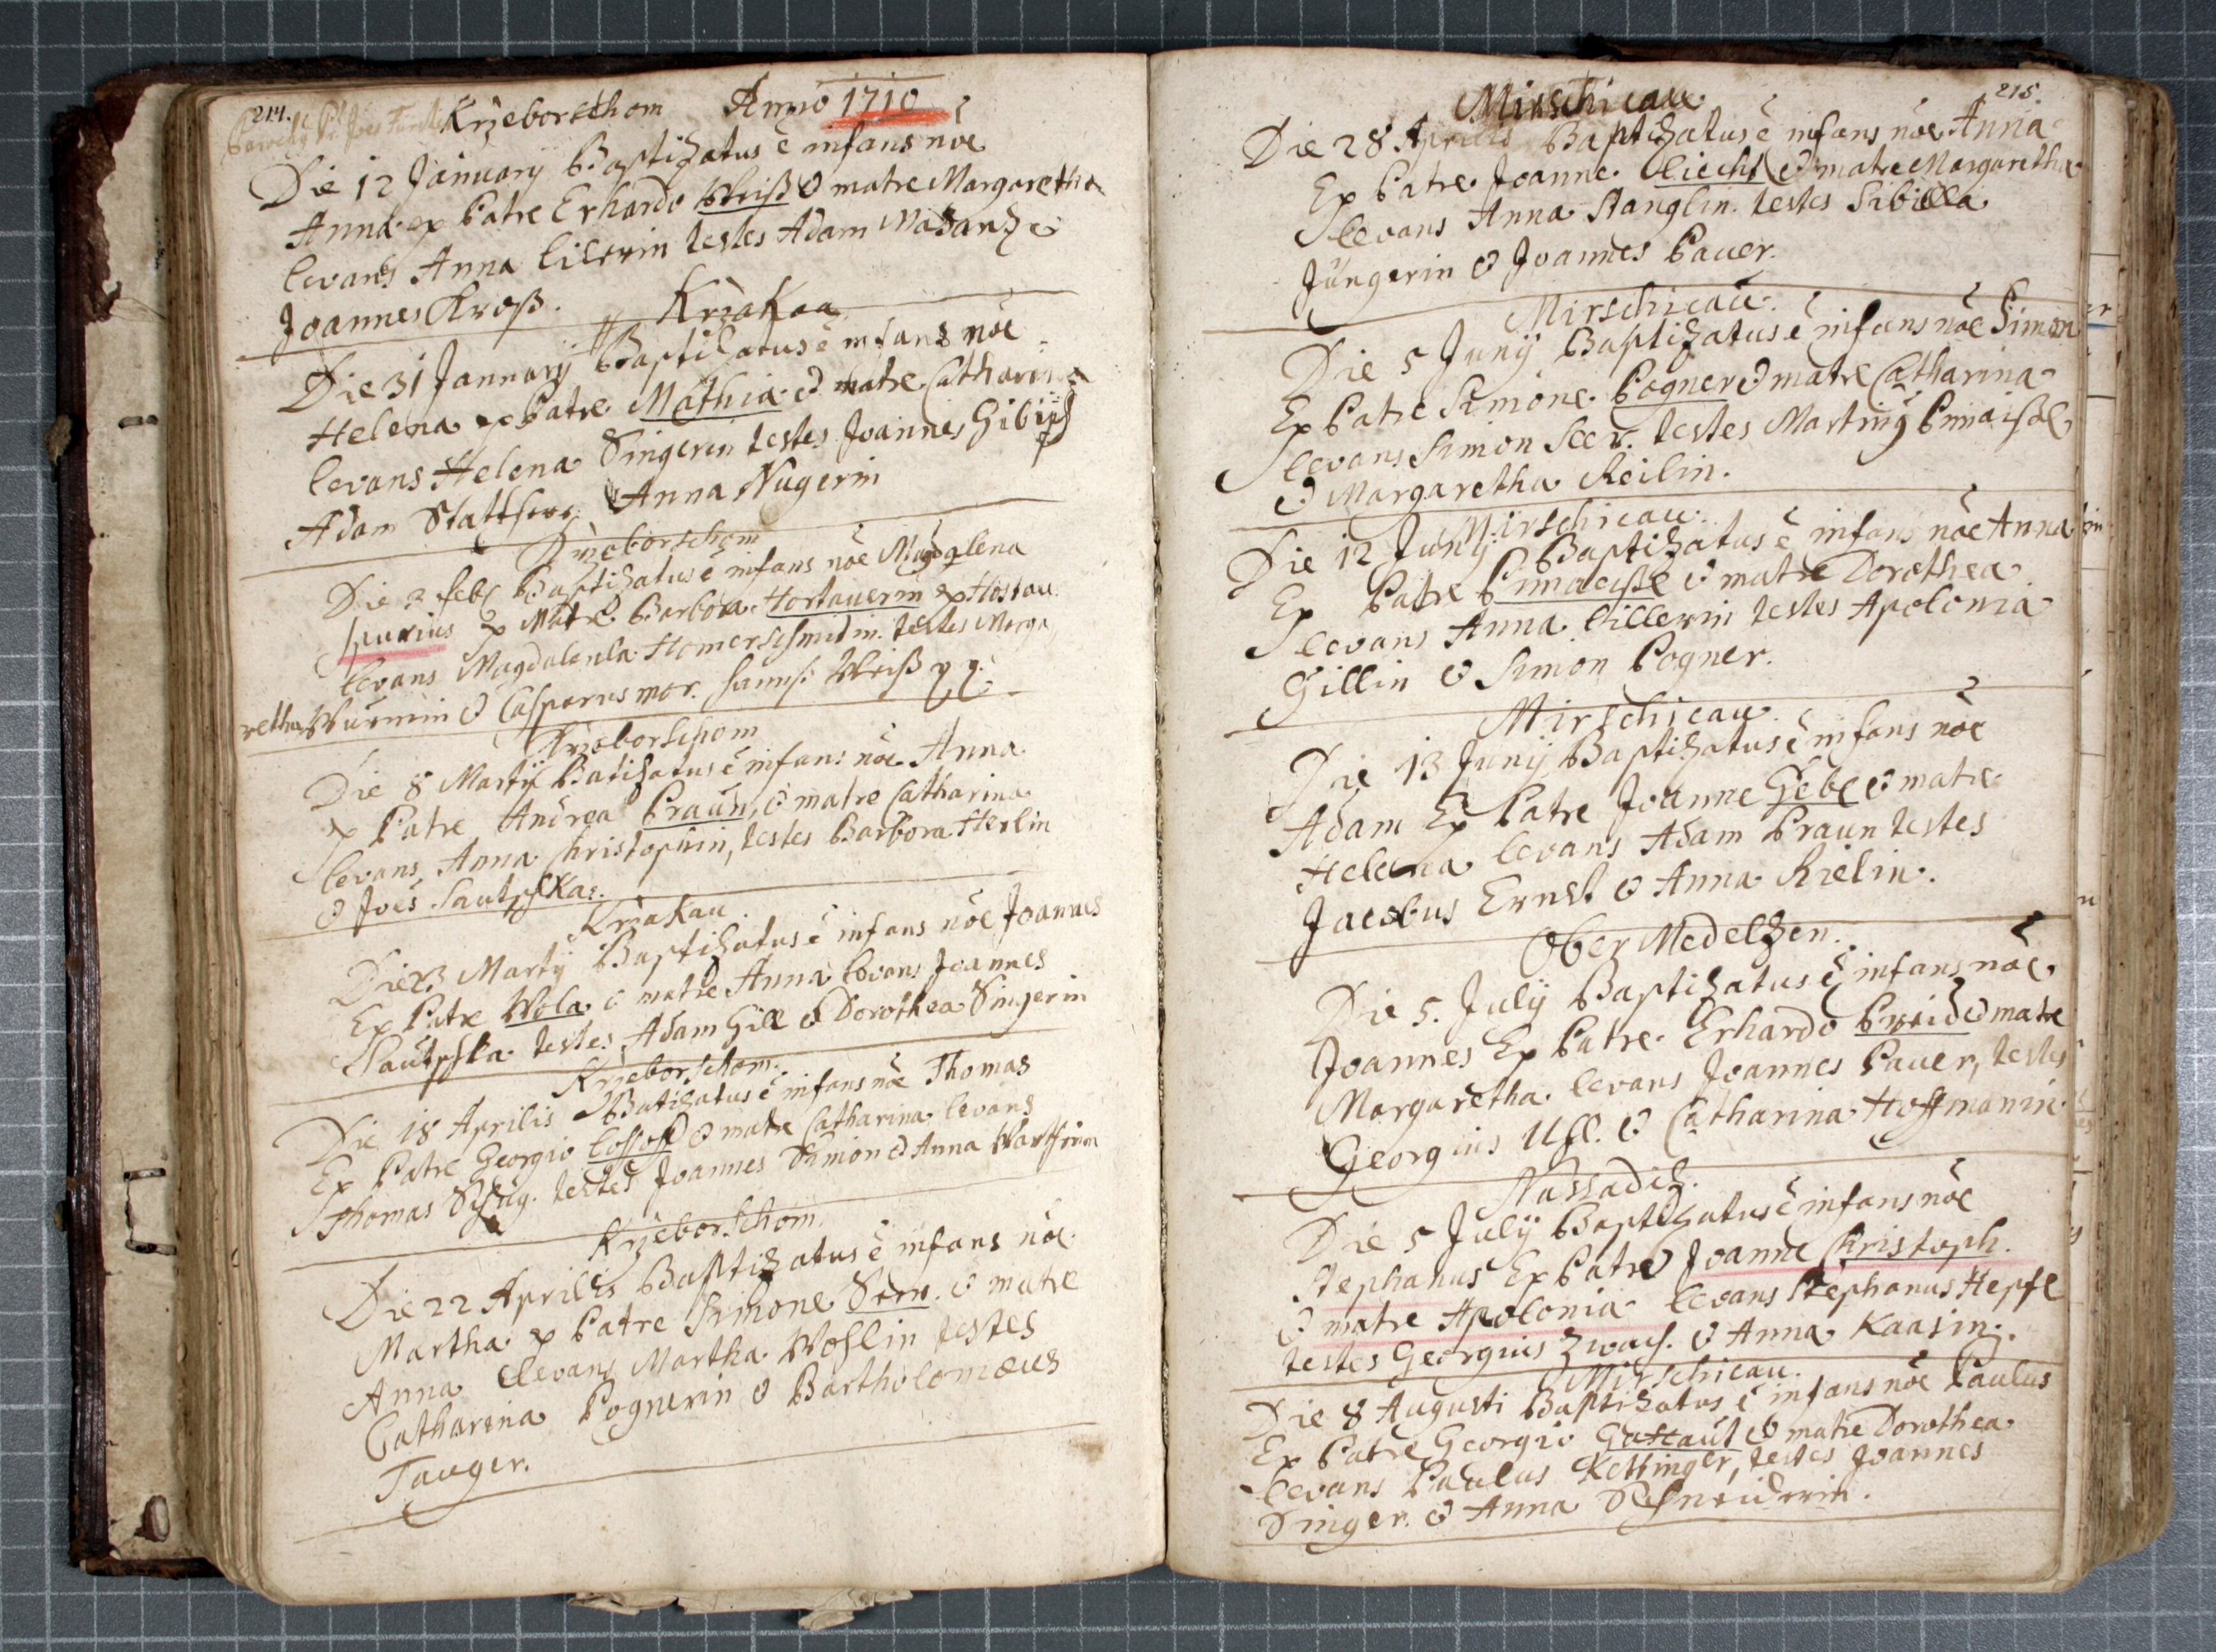 214.
Krzeborschom Anno 1710
Die 12 January Baptizatus ē infans nōe
Anna ex Patre Erhardo Weiß & matre Margaretha
levans Anna testes Adam
Joannes Kroß.
Krzakaa
Die 31 January Baptizatus ē infans nōe
Helena ex Patre Mathia & matre Catharina
levans Helena Singerin testes Joannes
Adam Anna Nugerin
Krzeborschom
Die 2 feb Baptizatus ē infans nōe Magdalena
spurius ex Matre Barbora Hortauerin ex Hostau
levans Magdalenla Homerschmidin testes Marga
retha Wurmin & Casparus Weiß
Krzeborschom
Die 8 Martij Batizatus ē infans nōe Anna
ex Patre Andrea Praun, & matre Catharina
levans, Anna Christophin, testes Barbora Herlin
& Joēs
Krzakau
Martij Baptizatus ē infans nōe Joannes
Ex Patre Wola & matre Anna levans Joannes
testes Adam Gill & Dorothea Singerin
Krzeborschom.
Die 18 Aprilis Batizatus ē infans nōe Thomas
Ex Patre Georgio & matre Catharina levans
Thomas testes Joannes Simon & Anna
Krzeborschom.
Die 22 Aprilis Baptizatus ē infans nōe
Martha ex Patre Simone & matre
Anna levans Martha Woslin testes
Catharina Pognerin & Bartholomæus
Tauger.
215.
Mirschicau
Die 28 Aprilis Baptizatus ē infans nōe Anna
Ex Patre Joanne Liecht & matre Margaretha
levans Anna Stanglin testes Sibilla
Jüngerin & Joannes Pauer.
Mirschicau.
Die 5 Junij Baptizatus ē infans nōe Simon
Ex Patre Simone Pogner & matre Catharina
levans Simon Seer. testes Martinus
& Margaretha Keilin.
Mirschicau.
Die 12 Junij Baptizatus ē infans nōe Anna
Ex Patre & matre Dorothea
levans Anna Lillerin testes Apolonia
Gillin & Simon Pogner.
Mirschicau.
Die 13 Junij Baptizatus ē infans nōe
Adam Ex Patre Joanne Gebl & matre
Helena levans Adam Praun testes
Jacobus Ernst & Anna Kielin.
Ober Medelzen.
Die 5. July Baptizatus ē infans nōe
Joannes Ex Patre Erhardo & matre
Margaretha levans Joannes Pauer, testes
Georgius Ußl. & Catharina Hoffmanin
Nassadiz.
Die 5 July Baptizatus ē infans nōe
Stephanus Ex Patre Joanne Christoph.
& matre Apolonia levans Stephanus Hepfl
testes Georgius & Anna Kaasin.
Mirschicau.
Die 8 Augusti Baptizatus ē infans nōe Paulus
Ex Patre Georgio & matre Dorothea
levans Paulus Kettinger, testes Joannes
Singer. & Anna Schneiderin.